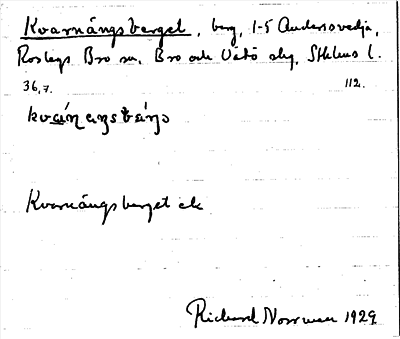 Kvarnängsberget, berg, 1-5 Andersvedja,
Roslags Bro sn, Bro och Vätö skg, Sthlms l.
36,7. 112.
Kvarnängsberget ek
Rickard Norrman 1929